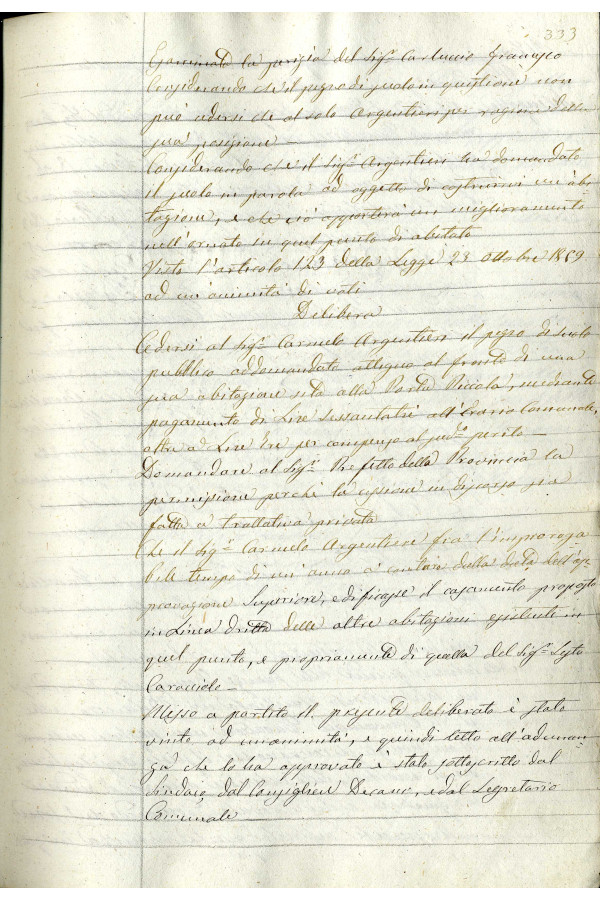 333
Esaminata la perizia del Sig.r Carluccio Francesco
Considerando che il pezzo di suolo in quistione non
può cedersi che al solo Argentieri per ragione della
sua posizione —
Considerando che il Sig.r Argentieri ha domandato
il suolo in parola ad oggetto di costruirvi un'abi-
tazione, e che ciò apporterà un miglioramento
nell'ornato in quel punto di abitato
Visto l'articolo 123 della Legge 23 Ottobre 1859
ad un'animità di voti
Delibera
Cedersi al Sig.r Carmelo Argentieri il pezzo di suolo
pubblico addomandato attiguo al fronte di una
sua abitazione sita alla Porta Piccola, mediante
pagamento di Lire sessantatrè all'Erario Comunale,
oltre a Lire tre per compenso al sud.o perito —
Domandare al Sig.r Prefetto della Provincia la
permissione perchè la cessione in discorso sia
fatta a trattativa privata
Che il Sig.r Carmelo Argentieri fra l'improroga
bile tempo di un'anno a contare dalla data dell'ap-
provazione Superiore, edificasse il casamento proposto
in Linea dritta delle altre abitazioni esistenti in
quel punto, e propriamente di quella del Sig.r Sisto
Caracciolo —
Messo a partito il presente deliberato è stato
vinto ad unanimità, e quindi letto all'adunan-
za che lo ha approvato è stato sottoscritto dal
Sindaco, dal Consigliere Decano, e dal Segretario
Comunale —